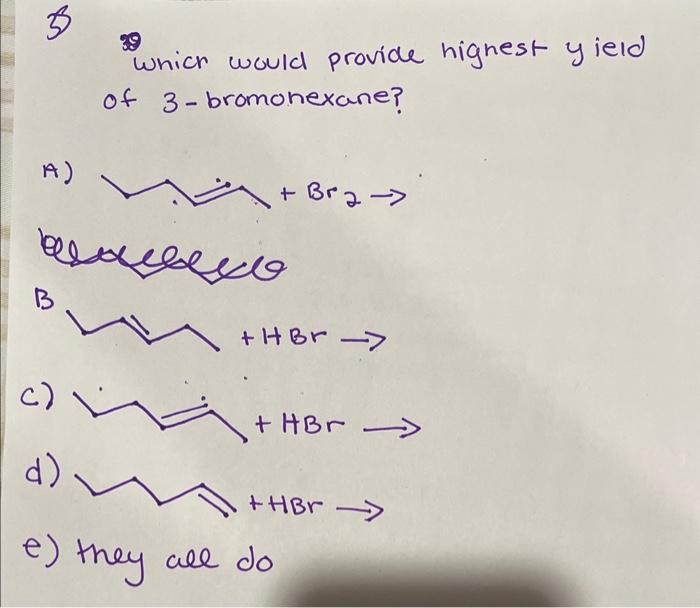 39
which would provide highest yield
of 3-bromohexane?
A) + Br2 →
B + HBr →
c) + HBr →
d) + HBr →
e) they all do